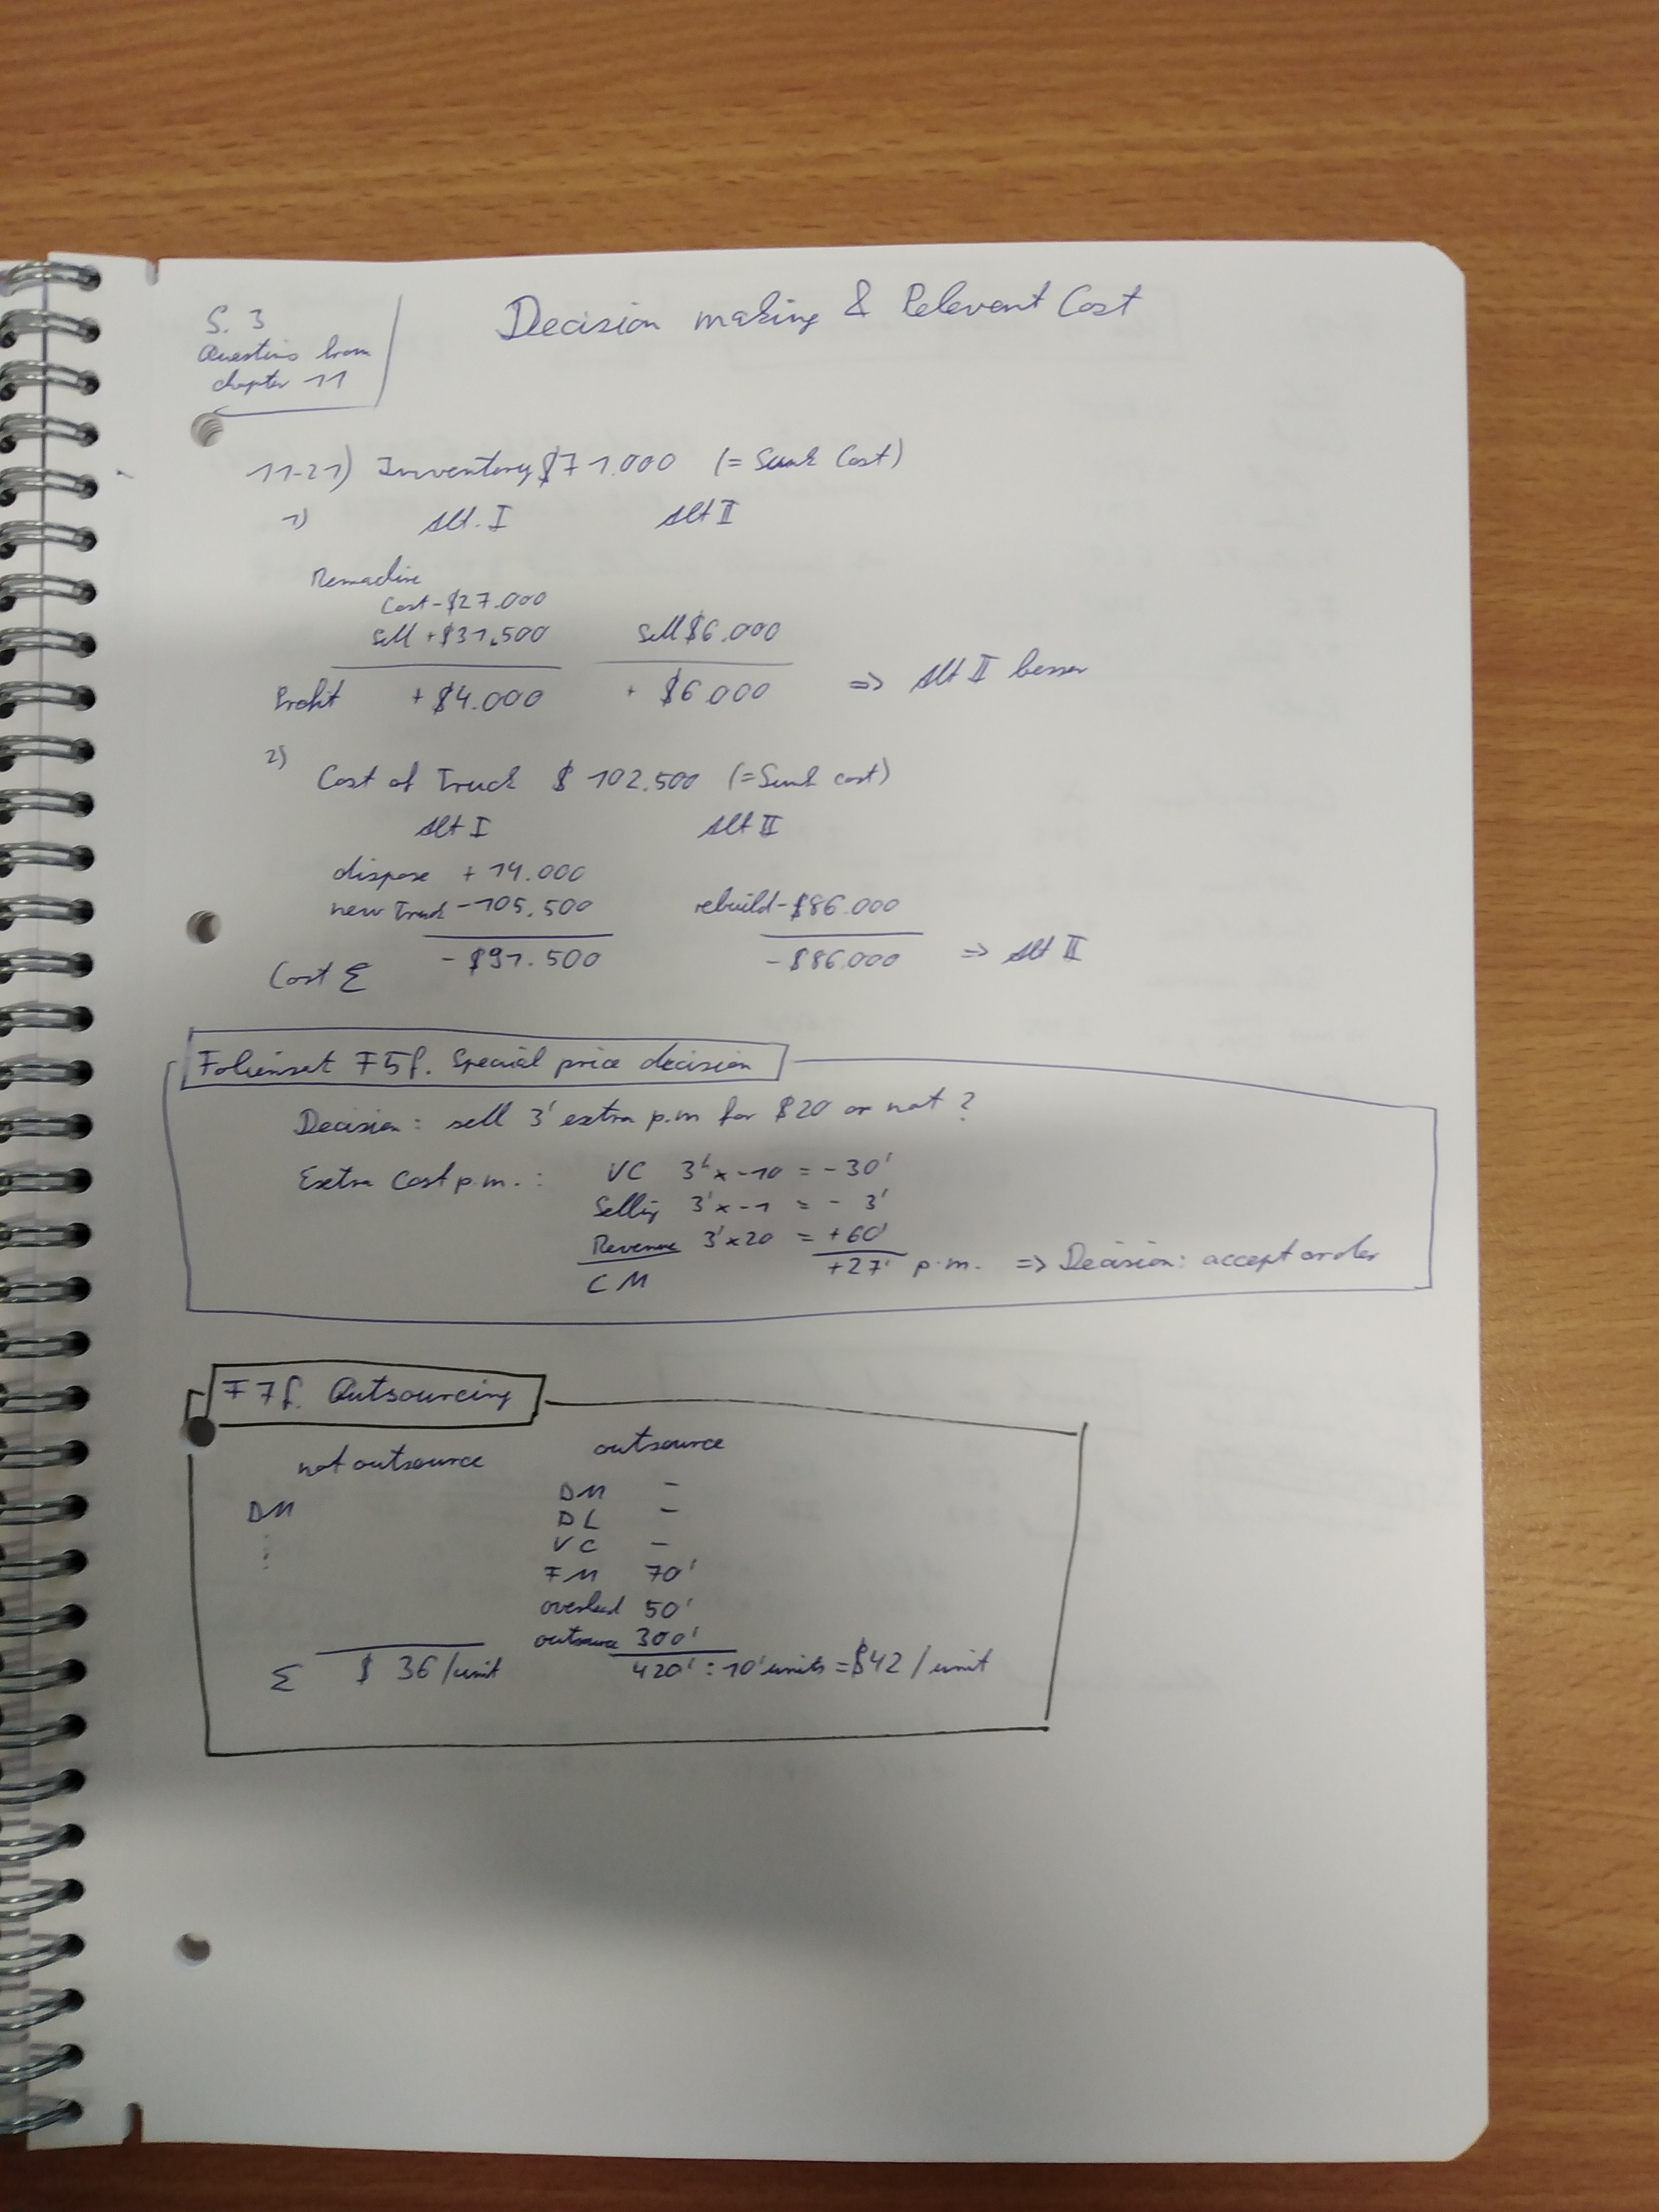 S. 3
Questions from
chapter 11
Decision making & Relevant Cost
11-21) Inventory $71.000 (= Sunk Cost)
1) Alt. I Alt II
Remachine
Cost -$27.000
sell +$31.500 sell $6.000
Profit +$4.000 + $6.000 => Alt II besser
2)
Cost of Truck $ 102.500 (=Sunk cost)
Alt I Alt II
dispose + 14.000
new Truck -105.500 rebuild -$86.000
Cost Σ -$91.500 -$86.000 => Alt II
Folienset F5f. Special price decision
Decision: sell 3' extra p.m for $20 or not?
Extra Cost p.m.: VC 3' x -10 = -30'
Selling 3' x -1 = - 3'
Revenue 3' x 20 = +60'
CM +27' p.m. => Decision: accept order
F7f. Outsourcing
not outsource outsource
DM DM –
DL –
VC –
FM 70'
overhead 50'
outsource 300'
Σ $ 36/unit 420' : 10' units = $42/unit